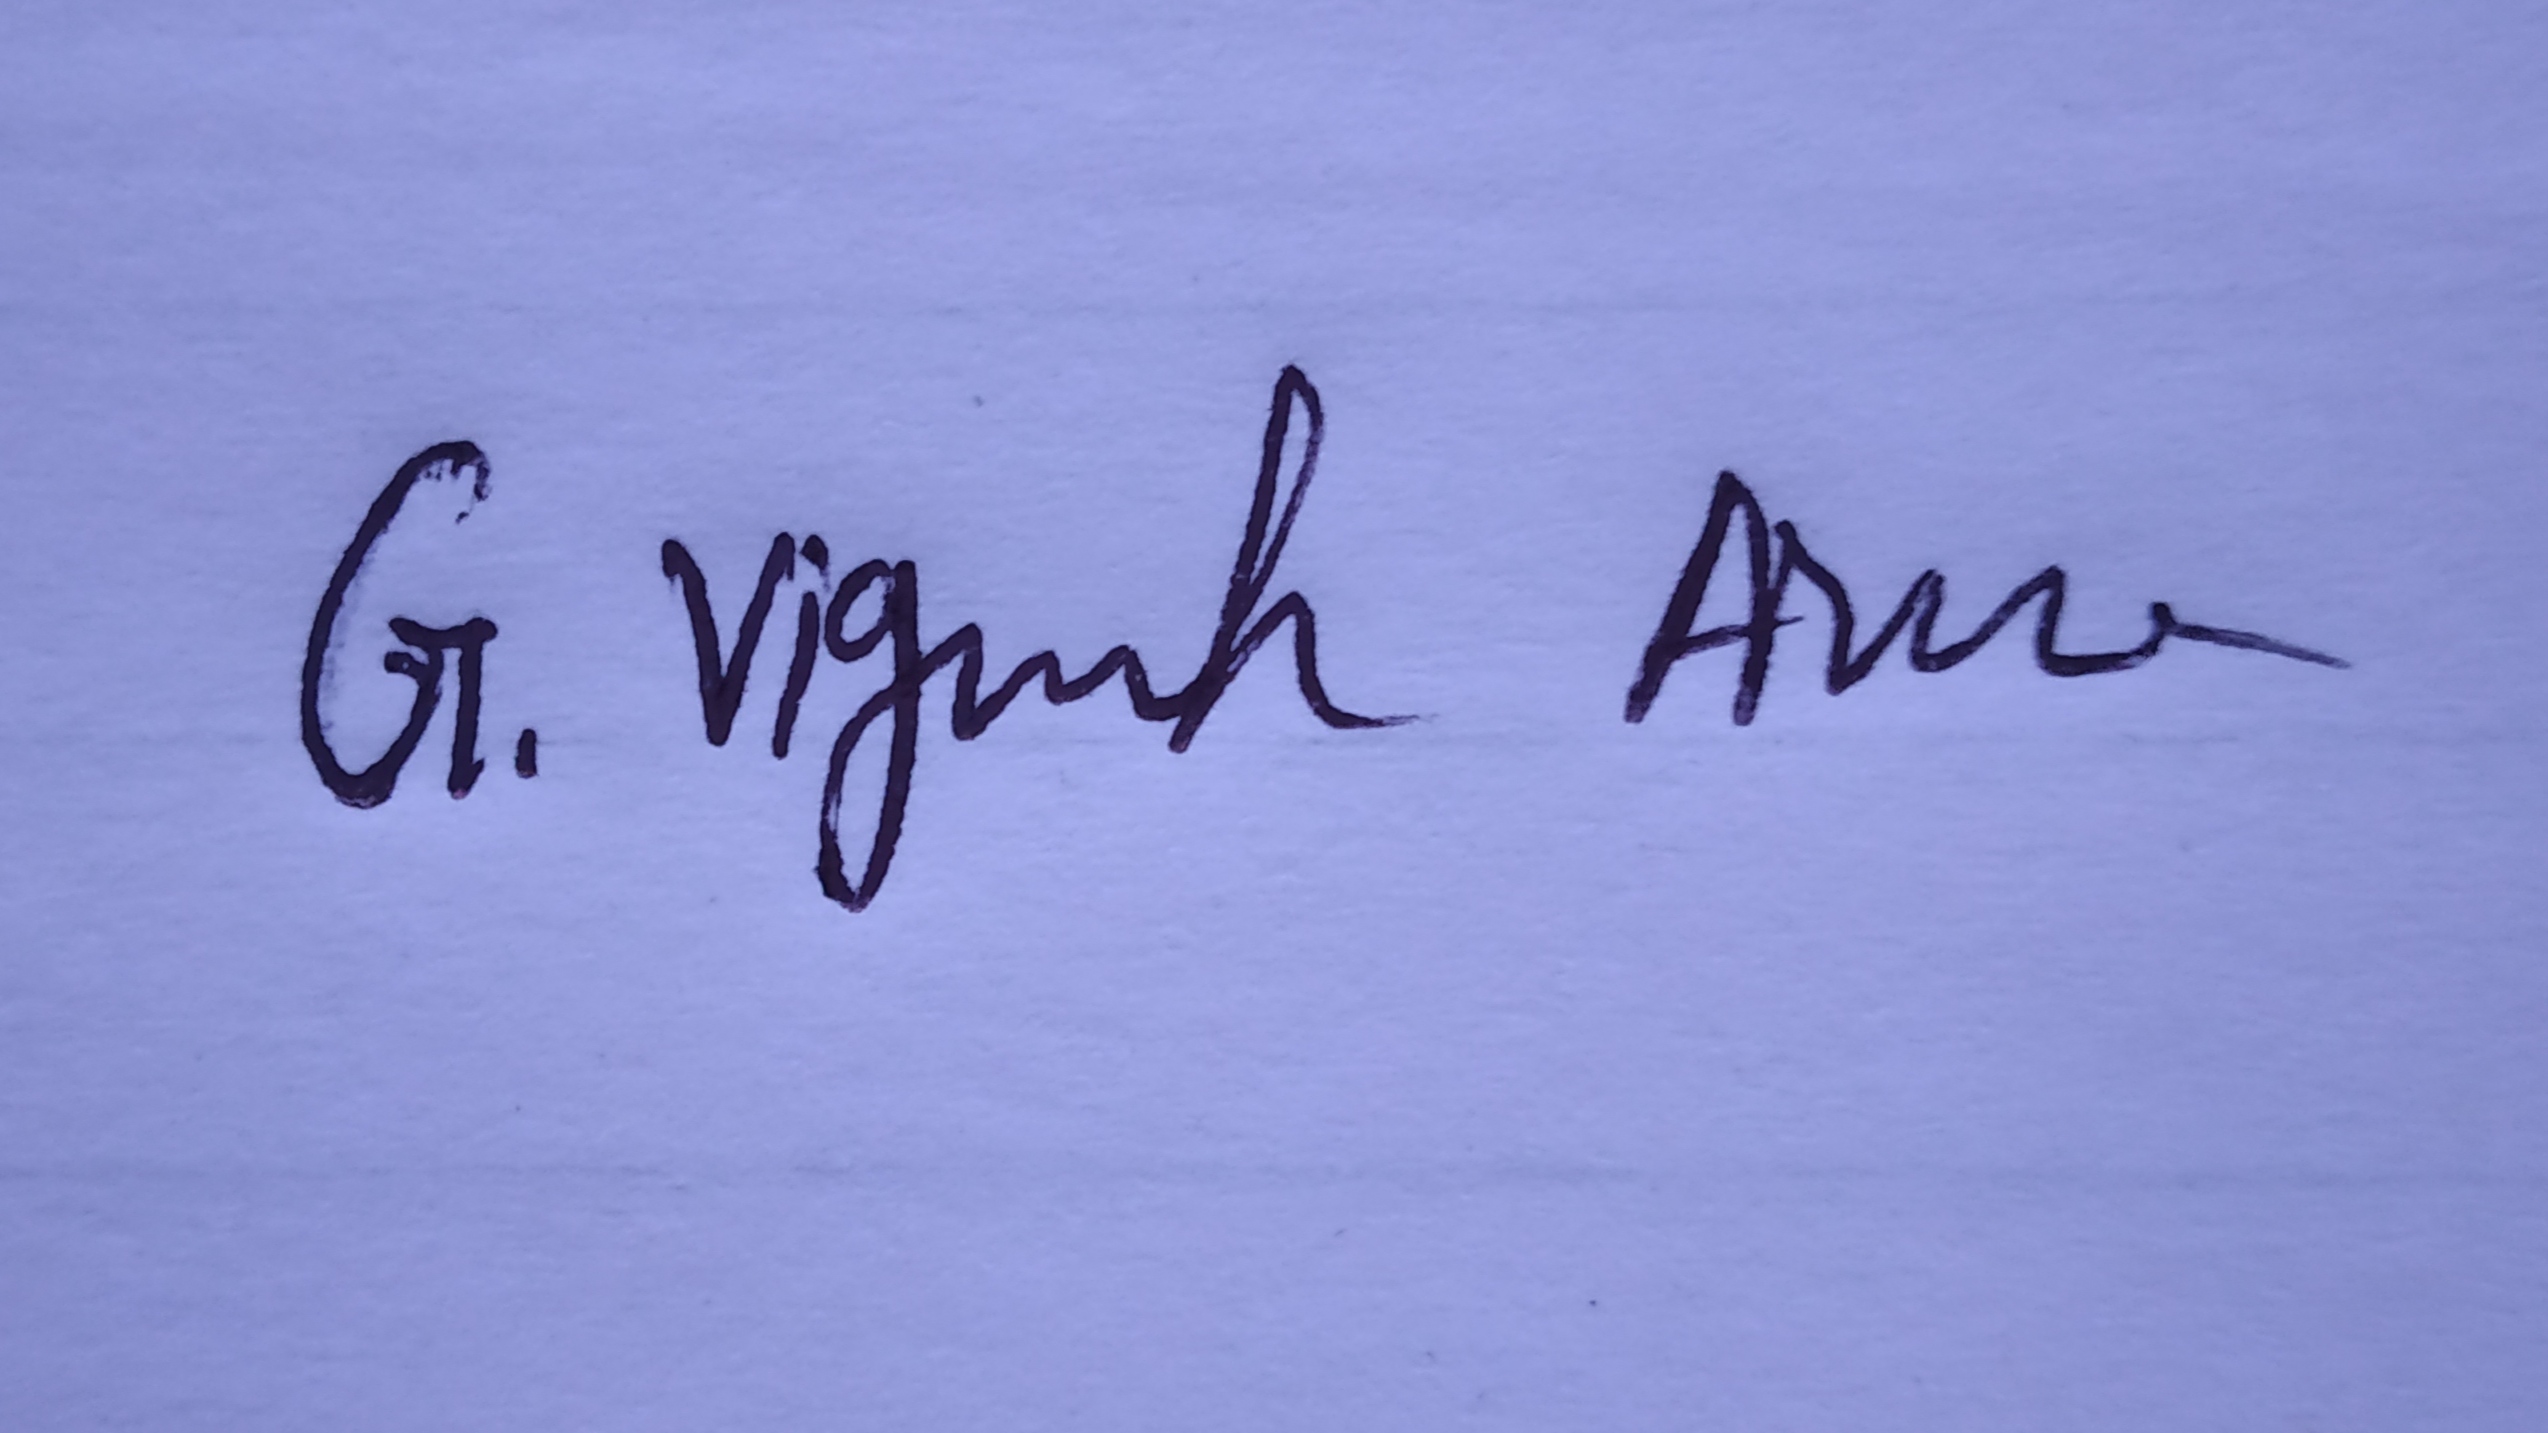 G. Vignesh Arun